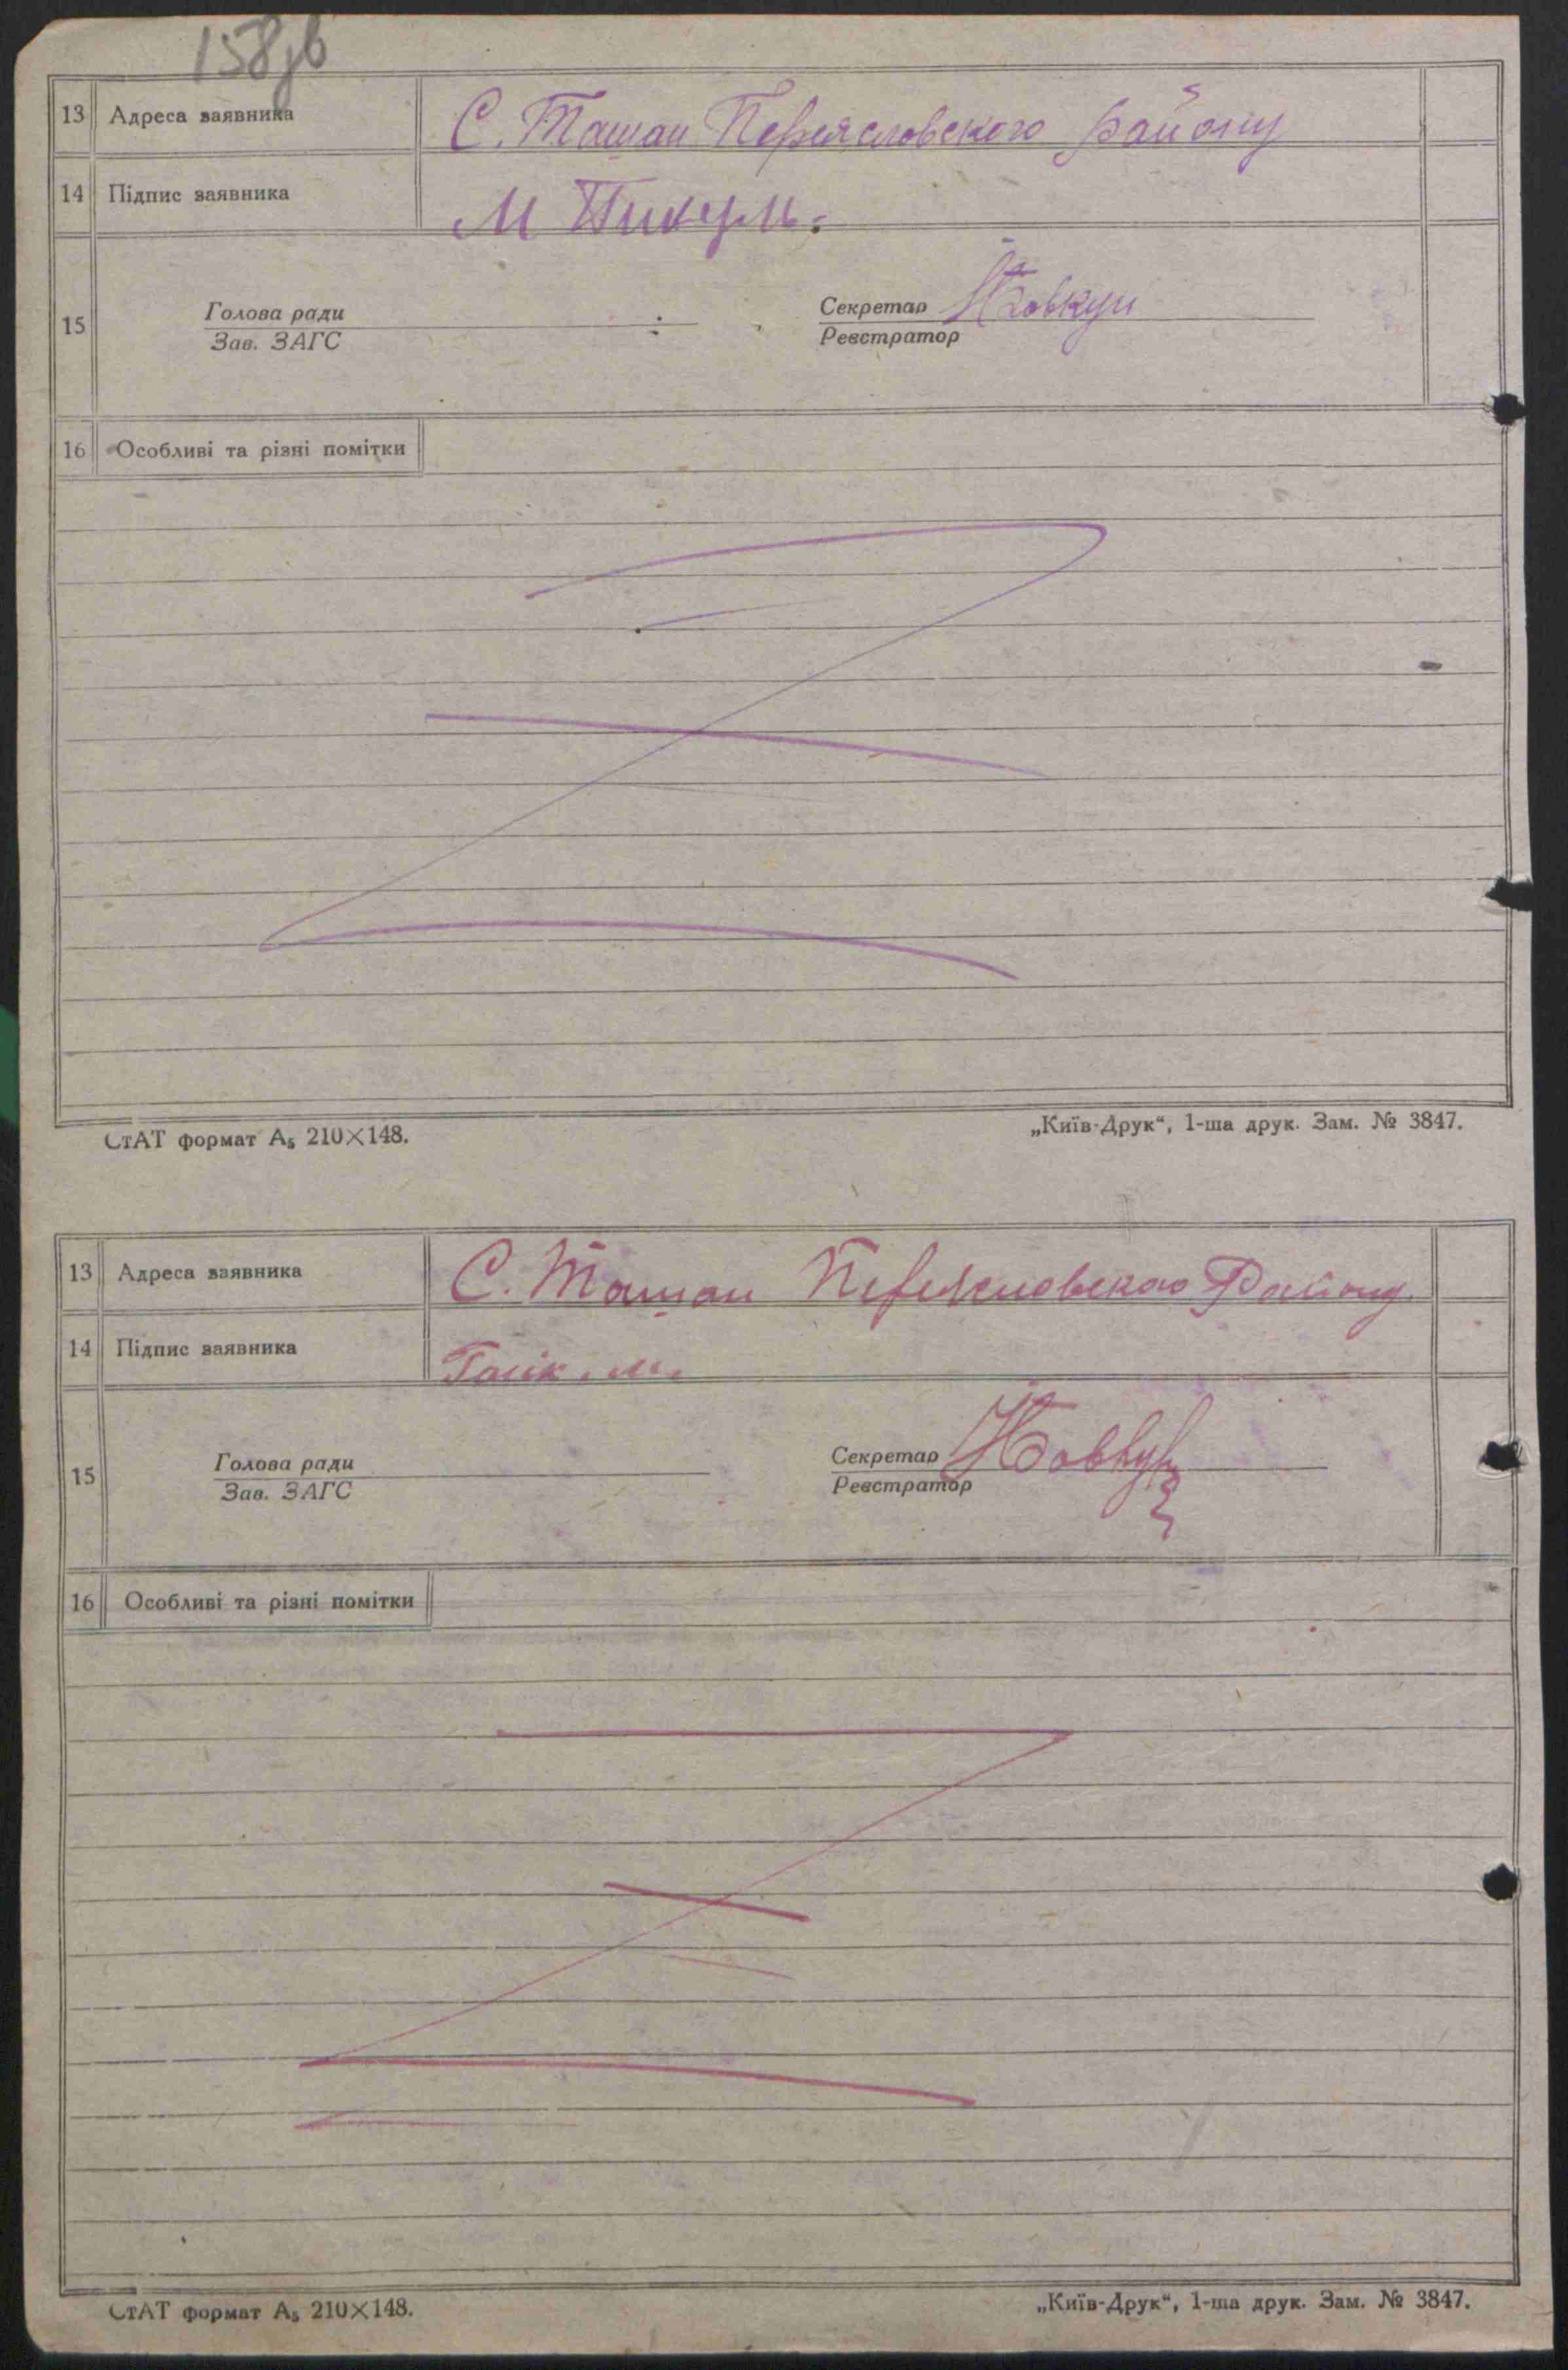 158зв
13 Адреса заявника С. Ташан Переясловского району
14 Підпис заявника М Пикуль.
15 Голова ради Секретар Ковкун
Зав. ЗАГС Реєстратор
16 Особливі та різні помітки
СтАТ формат А5 210×148. „Київ-Друк“, 1-ша друк. Зам. № 3847.
13 Адреса заявника С. Ташан Переясловского Району.
14 Підпис заявника М.
15 Голова ради Секретар Ковкун
Зав. ЗАГС Реєстратор
16 Особливі та різні помітки
СтАТ формат А5 210×148. „Київ-Друк“, 1-ша друк. Зам. № 3847.